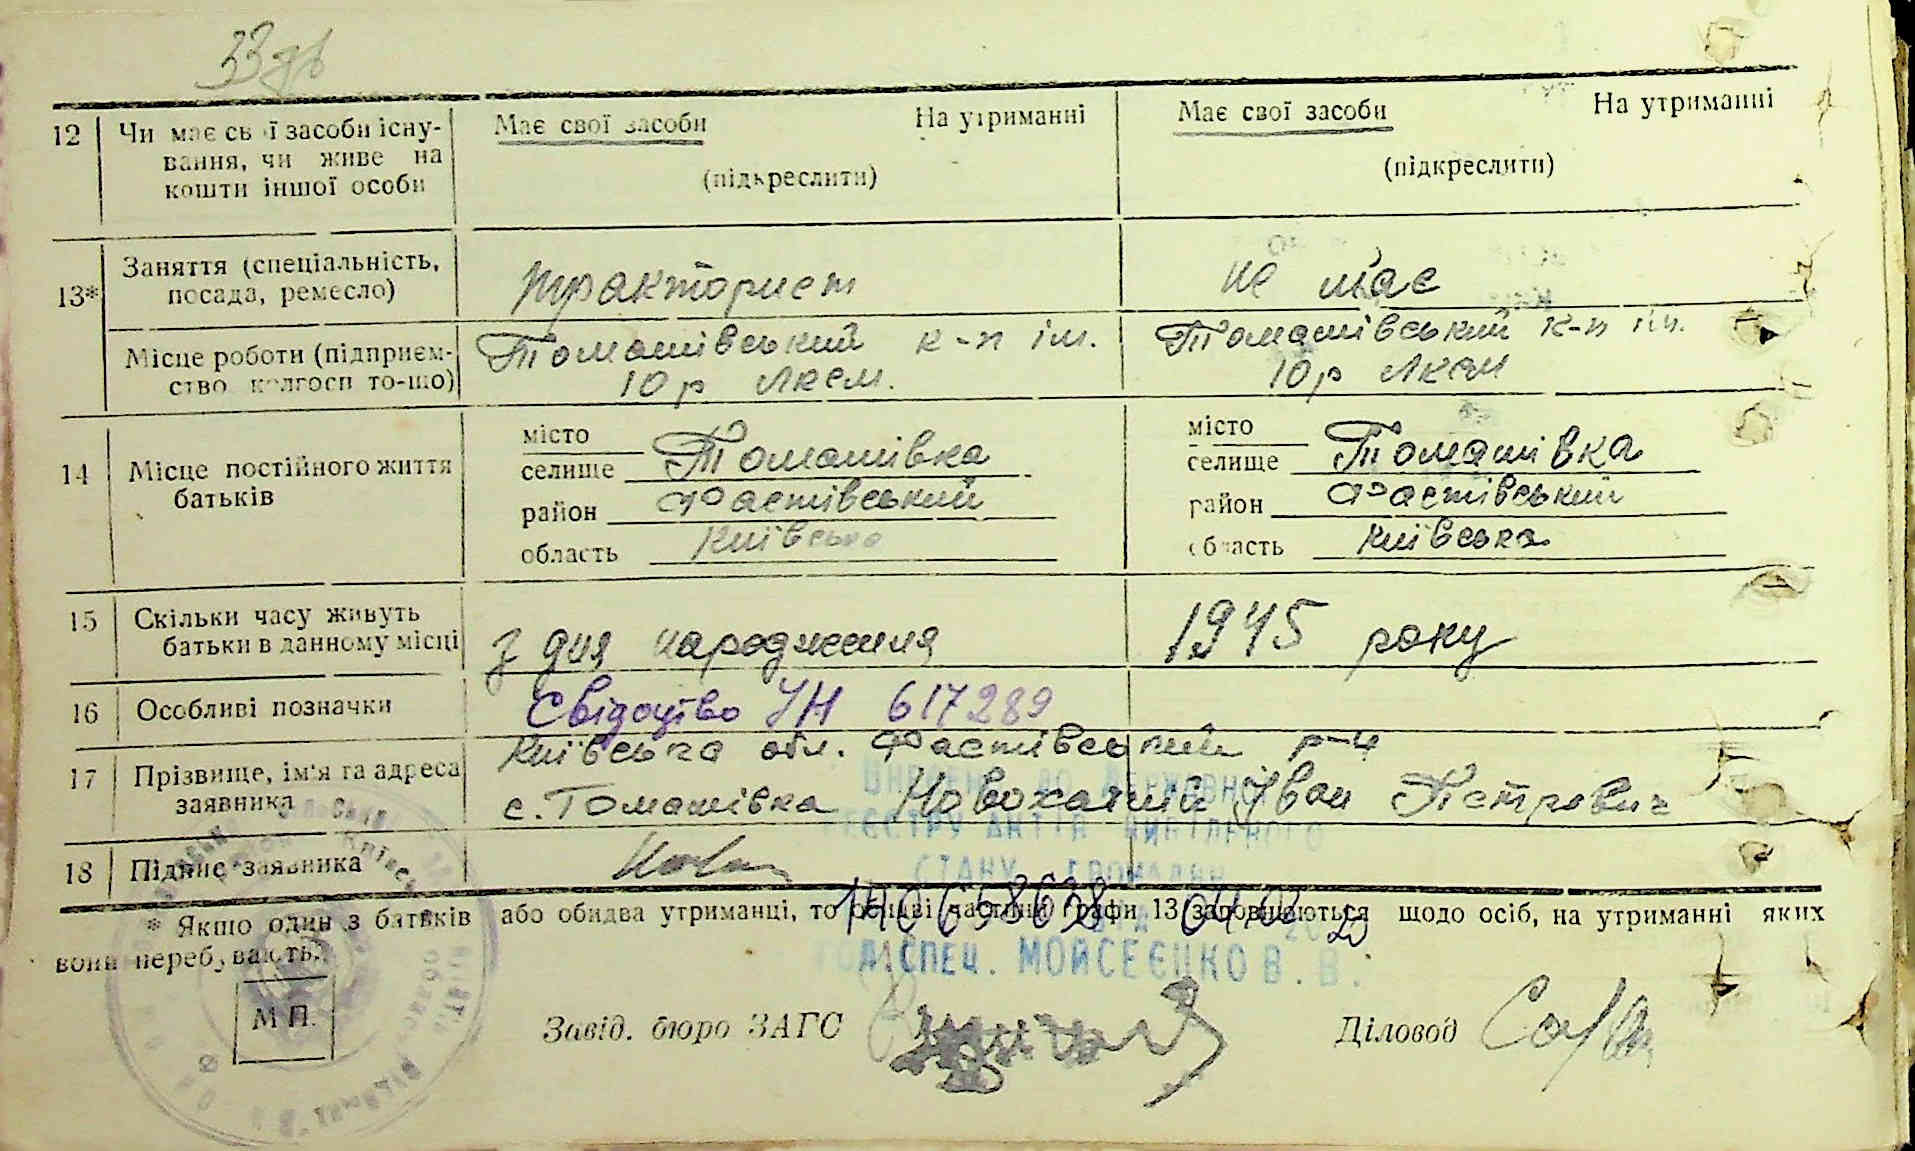 33
12 Чи має свої засоби існу- Має свої засоби На утриманні Має свої засоби На утриманні
вання, чи живе на (підкреслити) (підкреслити)
кошти іншої особи
13* Заняття (спеціальність, тракторист не має
посада, ремесло)
Місце роботи (підприєм- Томашівський к-п ім. Томашівський к-п ім.
ство колгосп то-що) 10р лксм. 10р лксм
14 Місце постійного життя батьків
місто місто
селище Томашівка селище Томашівка
район Фастівський район Фастівський
область Київська область Київська
15 Скільки часу живуть з дня народження 1945 року
батьки в данному місці
16 Особливі позначки Свідоцтво УН 617289
17 Прізвище, ім'я та адреса Київська обл. Фастівський р-н
заявника с. Томашівка Новохатній Іван Петрович
18 Підпис заявника
Внесено до Державного
реєстру актів цивільного
стану громадян
* Якщо один з батьків або обидва утриманці, то основні частини графи 13 заповнюються щодо осіб, на утриманні яких
вони перебувають.
спец. МОЙСЕЄНКО В. В.
М П.
Завід. бюро ЗАГС Діловод